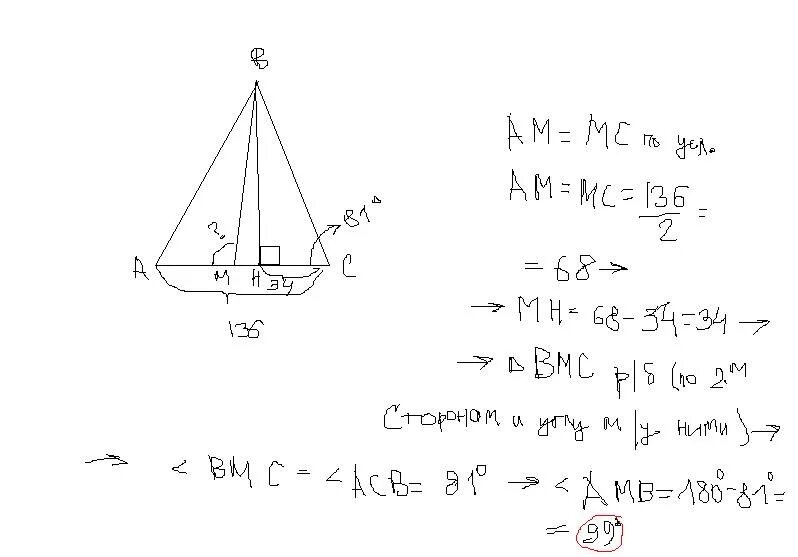 B
?
81°
A M H C
34
136
AM = MC по усл.
AM = MC = 136/2 =
= 68 →
→ MH = 68 - 34 = 34 →
→ △ BMC р/б (по 2м
сторонам и углу м/у ними) →
→ < BMC = < ACB = 81° → < AMB = 180° - 81° =
= 99°